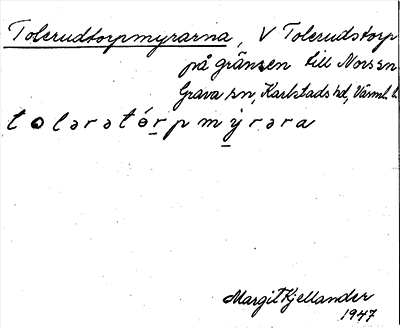 Tolerudtorpmyrarna, V Tolerudstorp
på gränsen till Nors sn
Grava sn, Karlstads hd, Värml. l.
tolərətórpmýrəra
Margit Kjellander
1947